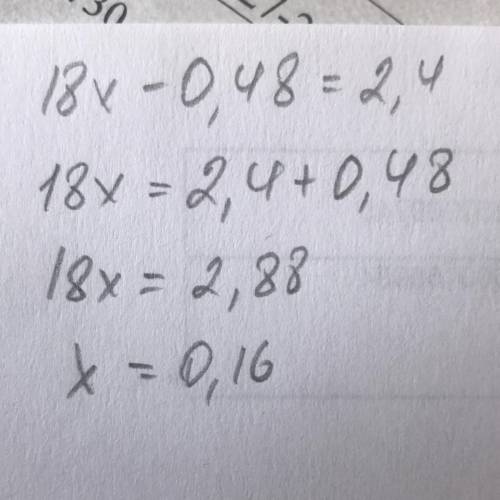 18x - 0,48 = 2,4
18x = 2,4 + 0,48
18x = 2,88
x = 0,16